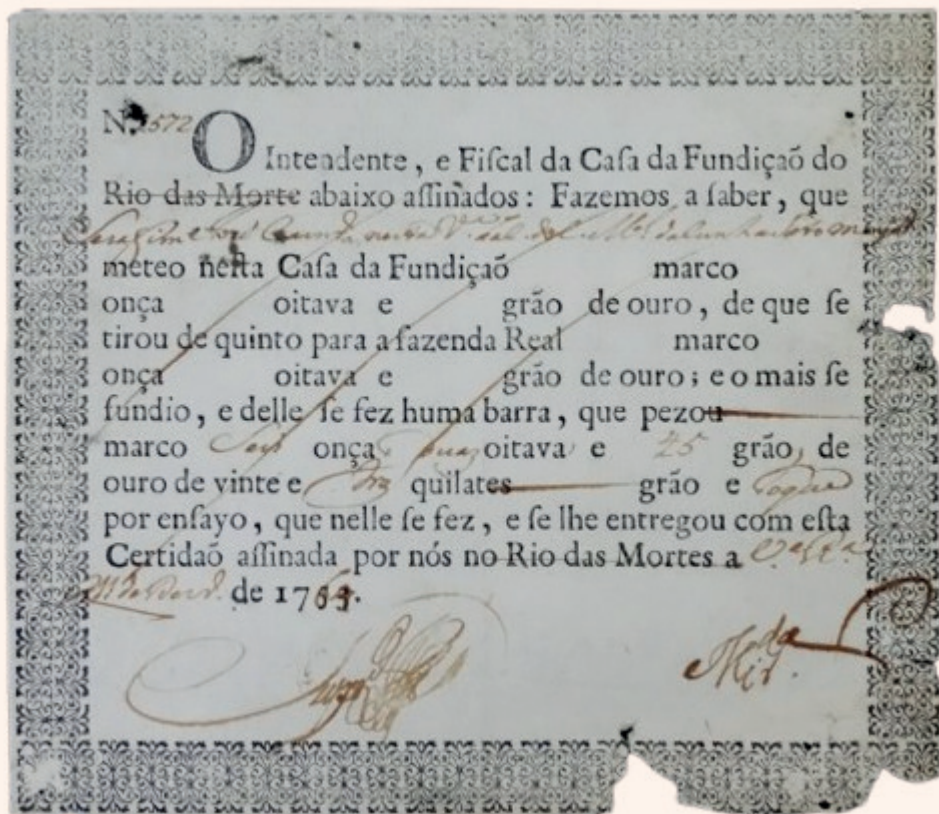 N. 572
O Intendente, e Fiſcal da Caſa da Fundiçaõ do
Rio das Morte abaixo aſſinados: Fazemos a ſaber, que
meteo neſta Caſa da Fundiçaõ marco
onça oitava e grão de ouro, de que ſe
tirou de quinto para a fazenda Real marco
onça oitava e grão de ouro; e o mais ſe
fundio, e delle ſe fez huma barra, que pezou
marco onça oitava e 25 grão, de
ouro de vinte e quilates grão e
por enſayo, que nelle ſe fez, e ſe lhe entregou com eſta
Certidaõ aſſinada por nós no Rio das Mortes a
de 176